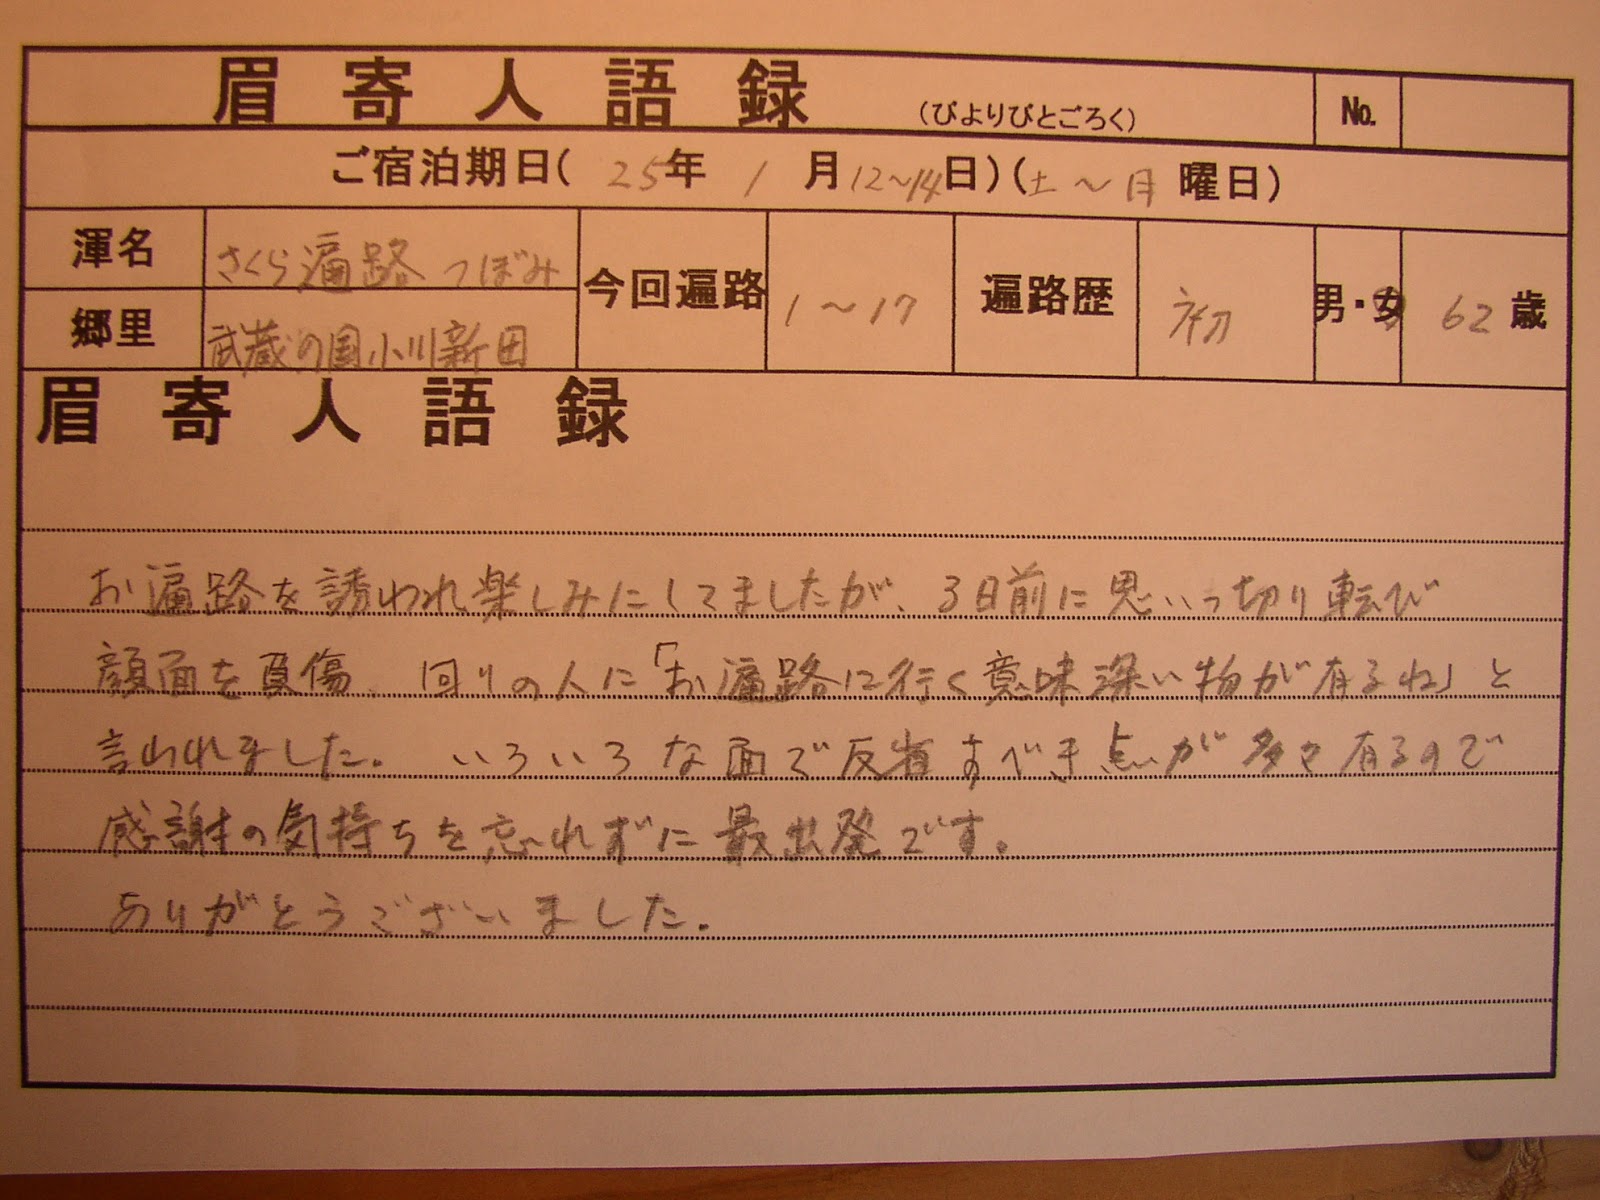 眉寄人語録 (びよりびとごろく) No.
ご宿泊期日( 25年 1 月12〜14日)(土〜月 曜日)
渾名 さくら遍路 つぼみ 今回遍路 1〜17 遍路歴 初 男・女 62 歳
郷里 武蔵の国小川新田
眉寄人語録
お遍路を誘われ楽しみにしてましたが、3日前に思いっ切り転び
顔面を負傷、回りの人に「お遍路に行く意味深い物が有るね」と
言われました。いろいろな面で反省すべき点が多々有るので
感謝の気持ちを忘れずに最出発です。
ありがとうございました。